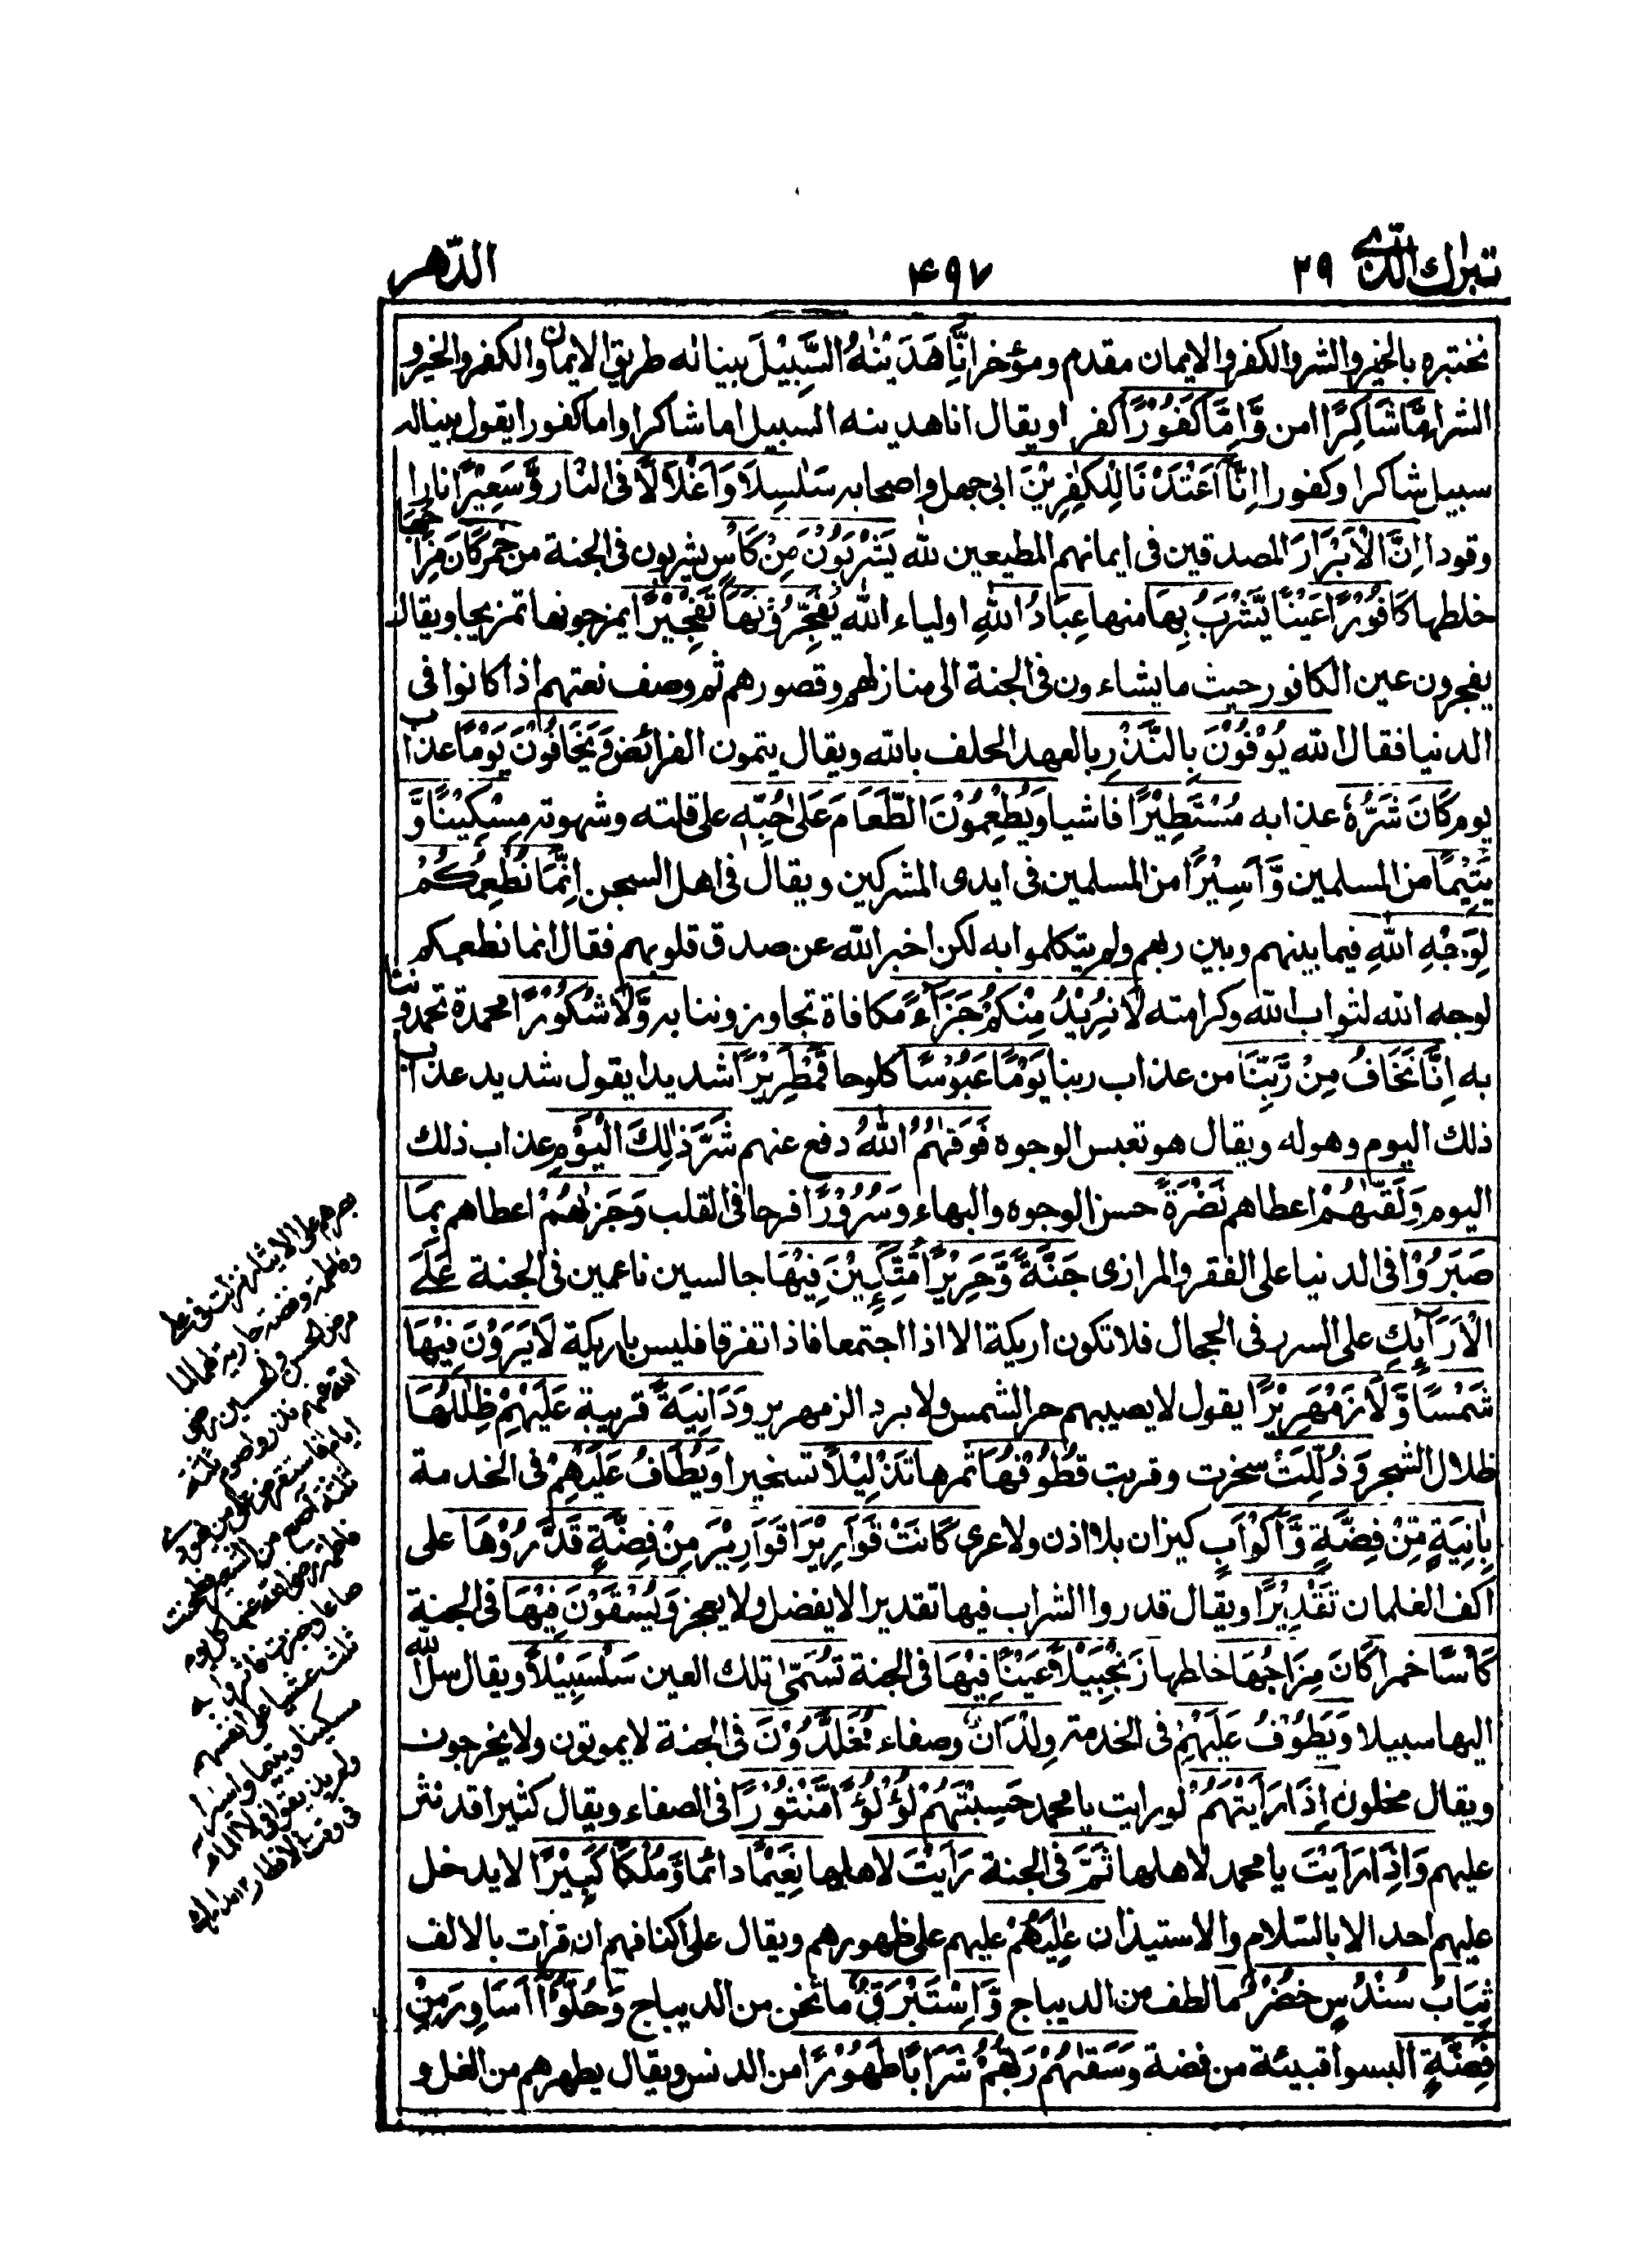 تبارك الذي ٢٩
٤٩٧
الدّهر
نختبره بالخير والشر والكفر والايمان مقدم ومؤخر اِنَّا هَدَيْنٰهُ السَّبِيْلَ بيناله طريق الايمان والكفر والخير و
الشر اِمَّا شَاكِرًا امن وَّاِمَّا كَفُوْرًا كفر ويقال انا هدينه السبيل اما شاكرا واما كفورا يقول بيناله
سبيل شاكرا وكفورا اِنَّا اَعْتَدْنَا لِلْكٰفِرِيْنَ ابى جهل واصحابه سَلٰسِلَا وَاَغْلَالًا فى النار وَّسَعِيْرًا نارا
وقودا اِنَّ الْاَبْرَارَ المصدقين فى ايمانهم المطيعين لله يَشْرَبُوْنَ مِنْ كَاْسٍ يشربون فى الجنة من خمر كَانَ مِزَاجُهَا
خلطها كَافُوْرًا عَيْنًا يَّشْرَبُ بِهَا منها عِبَادُ اللّٰهِ اولياء الله يُفَجِّرُوْنَهَا تَفْجِيْرًا يمزجونها تمزيجا ويقال
يفجرون عين الكافور حيث ما يشاءون فى الجنة الى منازلهم وقصورهم ثم وصف نعتهم اذا كانوا فى
الدنيا فقال الله يُوْفُوْنَ بِالنَّذْرِ بالعهد الحلف بالله ويقال يتمون الفرائض وَيَخَافُوْنَ يَوْمًا عذاب
يوم كَانَ شَرُّهٗ عذابه مُسْتَطِيْرًا فاشيا وَيُطْعِمُوْنَ الطَّعَامَ عَلٰى حُبِّهٖ على قلته وشهوته مِسْكِيْنًا وَّ
يَتِيْمًا من المسلمين وَّاَسِيْرًا من المسلمين فى ايدى المشركين ويقال فى اهل السجن اِنَّمَا نُطْعِمُكُمْ
لِوَجْهِ اللّٰهِ فيما بينهم وبين ربهم ولم يتكلموا به لكن اخبر الله عن صدق قلوبهم فقال انما نطعمكم
لوجه الله لثواب الله وكرامته لَا نُرِيْدُ مِنْكُمْ جَزَآءً مكافاة تجاوزوننا به وَّلَا شُكُوْرًا محمدة تحمدوننا
به اِنَّا نَخَافُ مِنْ رَّبِّنَا من عذاب ربنا يَوْمًا عَبُوْسًا كلوحا قَمْطَرِيْرًا شديدا يقول شديد عذاب
ذلك اليوم وهوله ويقال هو تعبس الوجوه فَوَقٰهُمُ اللّٰهُ دفع عنهم شَرَّ ذٰلِكَ الْيَوْمِ عذاب ذلك
اليوم وَلَقّٰهُمْ اعطاهم نَضْرَةً حسن الوجوه والبهاء وَّسُرُوْرًا فرحا فى القلب وَجَزٰىهُمْ اعطاهم بِمَا
صَبَرُوْا فى الدنيا على الفقر والمرازى جَنَّةً وَّحَرِيْرًا مُّتَّكِـِٕيْنَ فِيْهَا جالسين ناعمين فى الجنة عَلَى
الْاَرَآئِكِ على السرر فى الحجال فلا تكون اريكة الا اذا اجتمعا فاذا تفرقا فليس باريكة لَا يَرَوْنَ فِيْهَا
شَمْسًا وَّلَا زَمْهَرِيْرًا يقول لا يصيبهم حر الشمس ولا برد الزمهرير وَدَانِيَةً قريبة عَلَيْهِمْ ظِلٰلُهَا
ظلال الشجر وَذُلِّلَتْ سخرت وقربت قُطُوْفُهَا ثمرها تَذْلِيْلًا تسخيرا وَيُطَافُ عَلَيْهِمْ فى الخدمة
بِاٰنِيَةٍ مِّنْ فِضَّةٍ وَّاَكْوَابٍ كيزان بلا اذن ولا عرى كَانَتْ قَوَارِيْرَا قَوَارِيْرَ مِنْ فِضَّةٍ قَدَّرُوْهَا على
اكف الغلمان تَقْدِيْرًا ويقال قدروا الشراب فيها تقديرا لا يفضل ولا يعجز وَيُسْقَوْنَ فِيْهَا فى الجنة
كَاْسًا خمرا كَانَ مِزَاجُهَا خلطها زَنْجَبِيْلًا عَيْنًا فِيْهَا فى الجنة تُسَمّٰى تلك العين سَلْسَبِيْلًا ويقال سل الله
اليها سبيلا وَيَطُوْفُ عَلَيْهِمْ فى الخدمة وِلْدَانٌ وصفاء مُّخَلَّدُوْنَ فى الجنة لا يموتون ولا يخرجون
ويقال محلون اِذَا رَاَيْتَهُمْ لو رايت يا محمد حَسِبْتَهُمْ لُؤْلُؤًا مَّنْثُوْرًا فى الصفاء ويقال كثيرا قد نثر
عليهم وَاِذَا رَاَيْتَ يا محمد لاهلها ثَمَّ فى الجنة رَاَيْتَ لاهلها نَعِيْمًا دائما وَّمُلْكًا كَبِيْرًا لا يدخل
عليهم احد الا بالسّلام والاستيذان عٰلِيَهُمْ عليهم على ظهورهم ويقال على اكنافهم ان قرات بالالف
ثِيَابُ سُنْدُسٍ خُضْرٌ ما لطف من الديباج وَّاِسْتَبْرَقٌ ما ثخن من الديباج وَّحُلُّوْا اَسَاوِرَ مِنْ
فِضَّةٍ البسوا اقبيئة من فضة وَسَقٰىهُمْ رَبُّهُمْ شَرَابًا طَهُوْرًا من الدنس ويقال يطهرهم من الغل و
بصبرهم على الايثار نزلت فى على
وفاطمة وفضة جارية لهما لما
مرض الحسن والحسين رضى
الله عنهم نذروا صوم ثلثة
ايام فاستقرض على من يهودى
ثلثة آصع من الشعير فطحنت
فاطمة رضى الله عنها كل يوم
صاعا وخبزت فاثروا به
ثلث عشيا على انفسهم
مسكينا ويتيما واسيرا
ولم يذوقوا الا الماء
فى وقت الافطار ١٢ مدارك